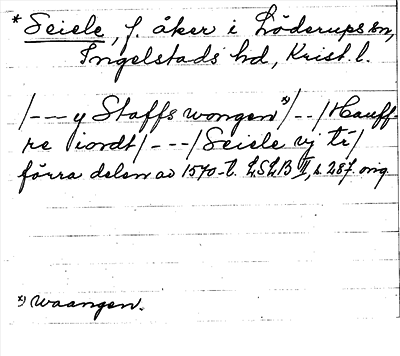 * Seiele, f. åker i Löderups sn,
Ingelstads hd, Krist. l.
/--- y Staffs wongen x)/--/Hauff-
re iordt/---/Seiele vj tr/
förra delen av 1570-t. LSLB II, s. 287. orig
x) Waangen.